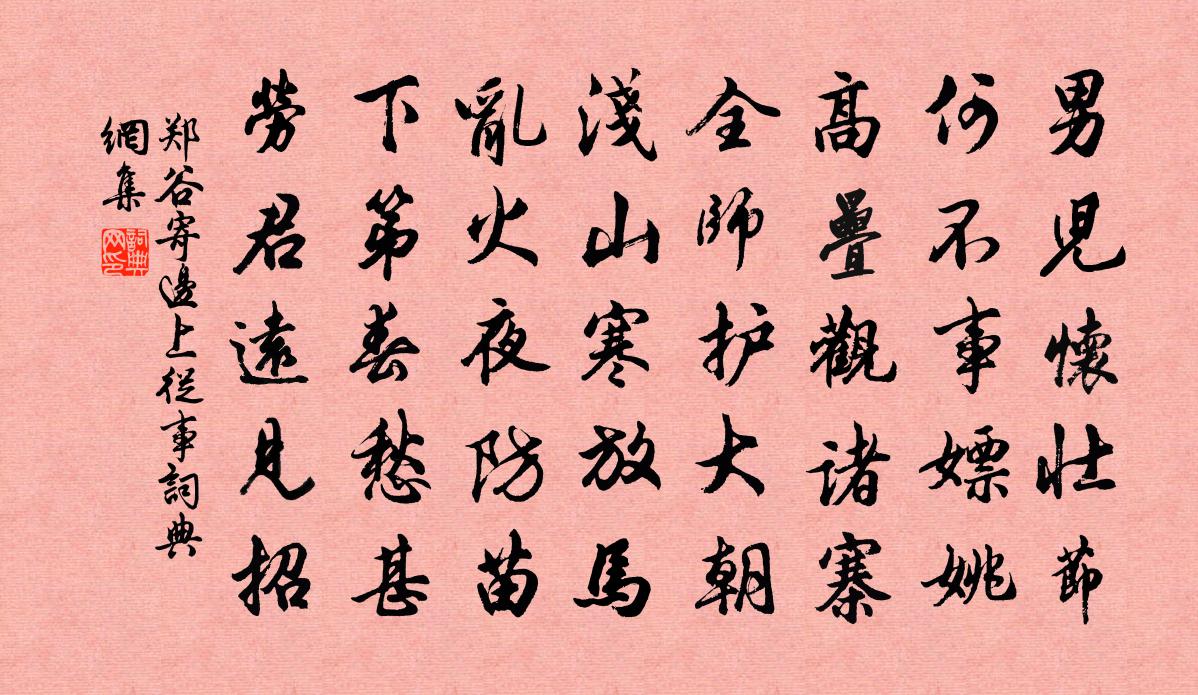 男児懷壮節
何不事嫖姚
髙疊觀諸寨
全师护大朝
淺山寒放馬
亂火夜防苗
下第春愁甚
勞君遠見招
郑谷寄邊上從事詞典
網集
詞典
网印